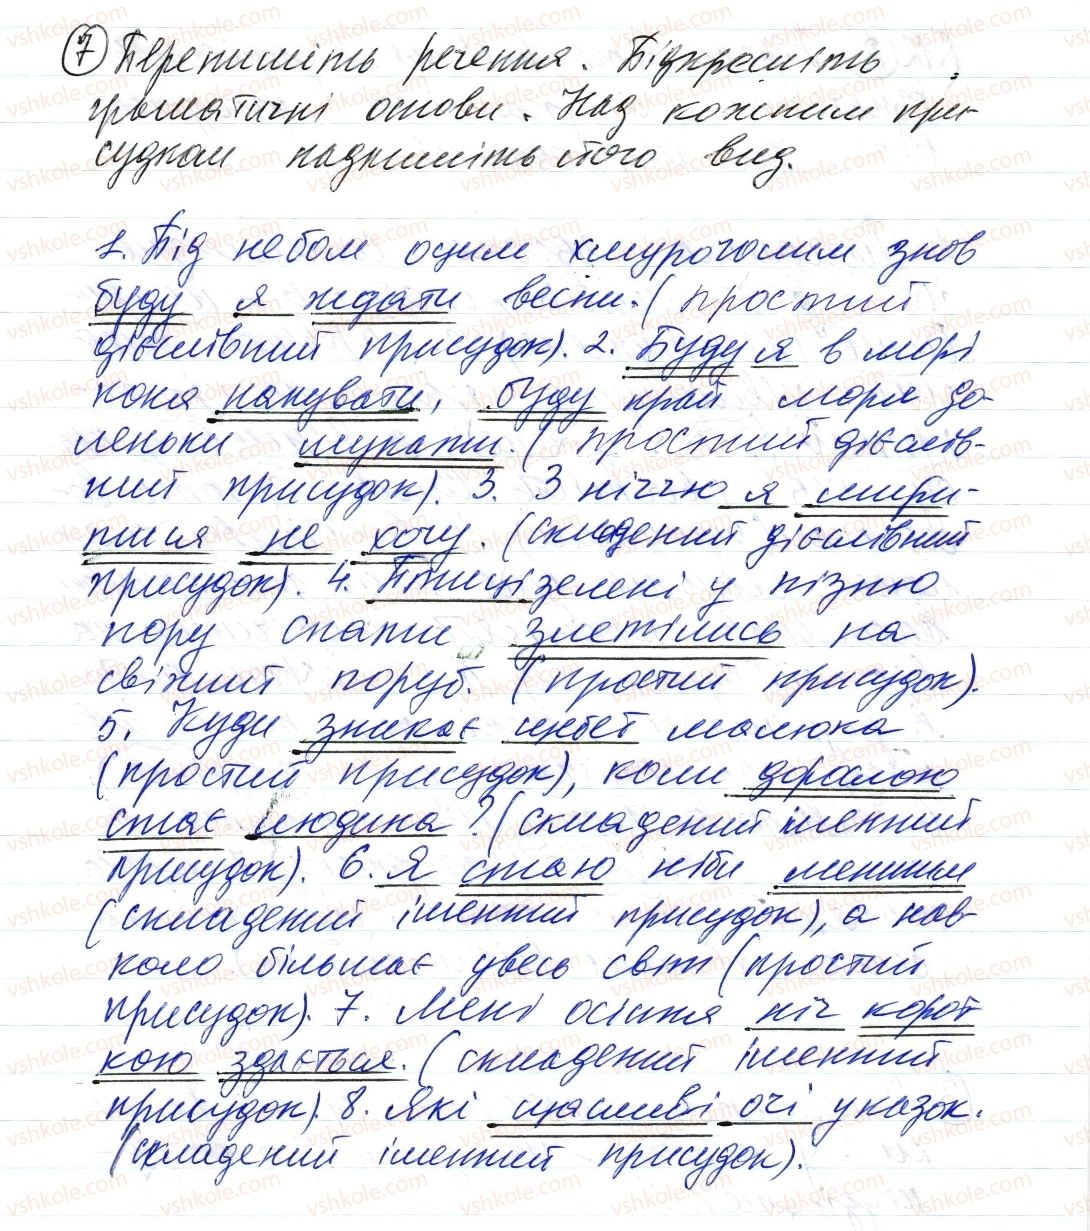 7 Перепишіть речення. Підкресліть
граматичні основи. Над кожним при-
судком надпишіть його вид.
1. Під небом оцим хмурочолим знов
буду я ждати весни. (простий
дієслівний присудок). 2. Буду я в морі
коня напувати, буду край моря до-
леньки шукати. (простий дієслів-
ний присудок). 3. З ніччю я мири-
тися не хочу. (складений дієслівний
присудок). 4. Птиці зелені у пізню
пору спати злетілись на
свіжий поруб. (простий присудок).
5. Куди зникає цвєт малюка
(простий присудок), коли дорослою
стає людина? (складений іменний
присудок). 6. Я стаю ніби меншим
(складений іменний присудок), а нав-
коло більшає увесь світ (простий
присудок). 7. Мені осіння ніч корот-
кою здається. (складений іменний
присудок). 8. Які щасливі очі у казок.
(складений іменний присудок).